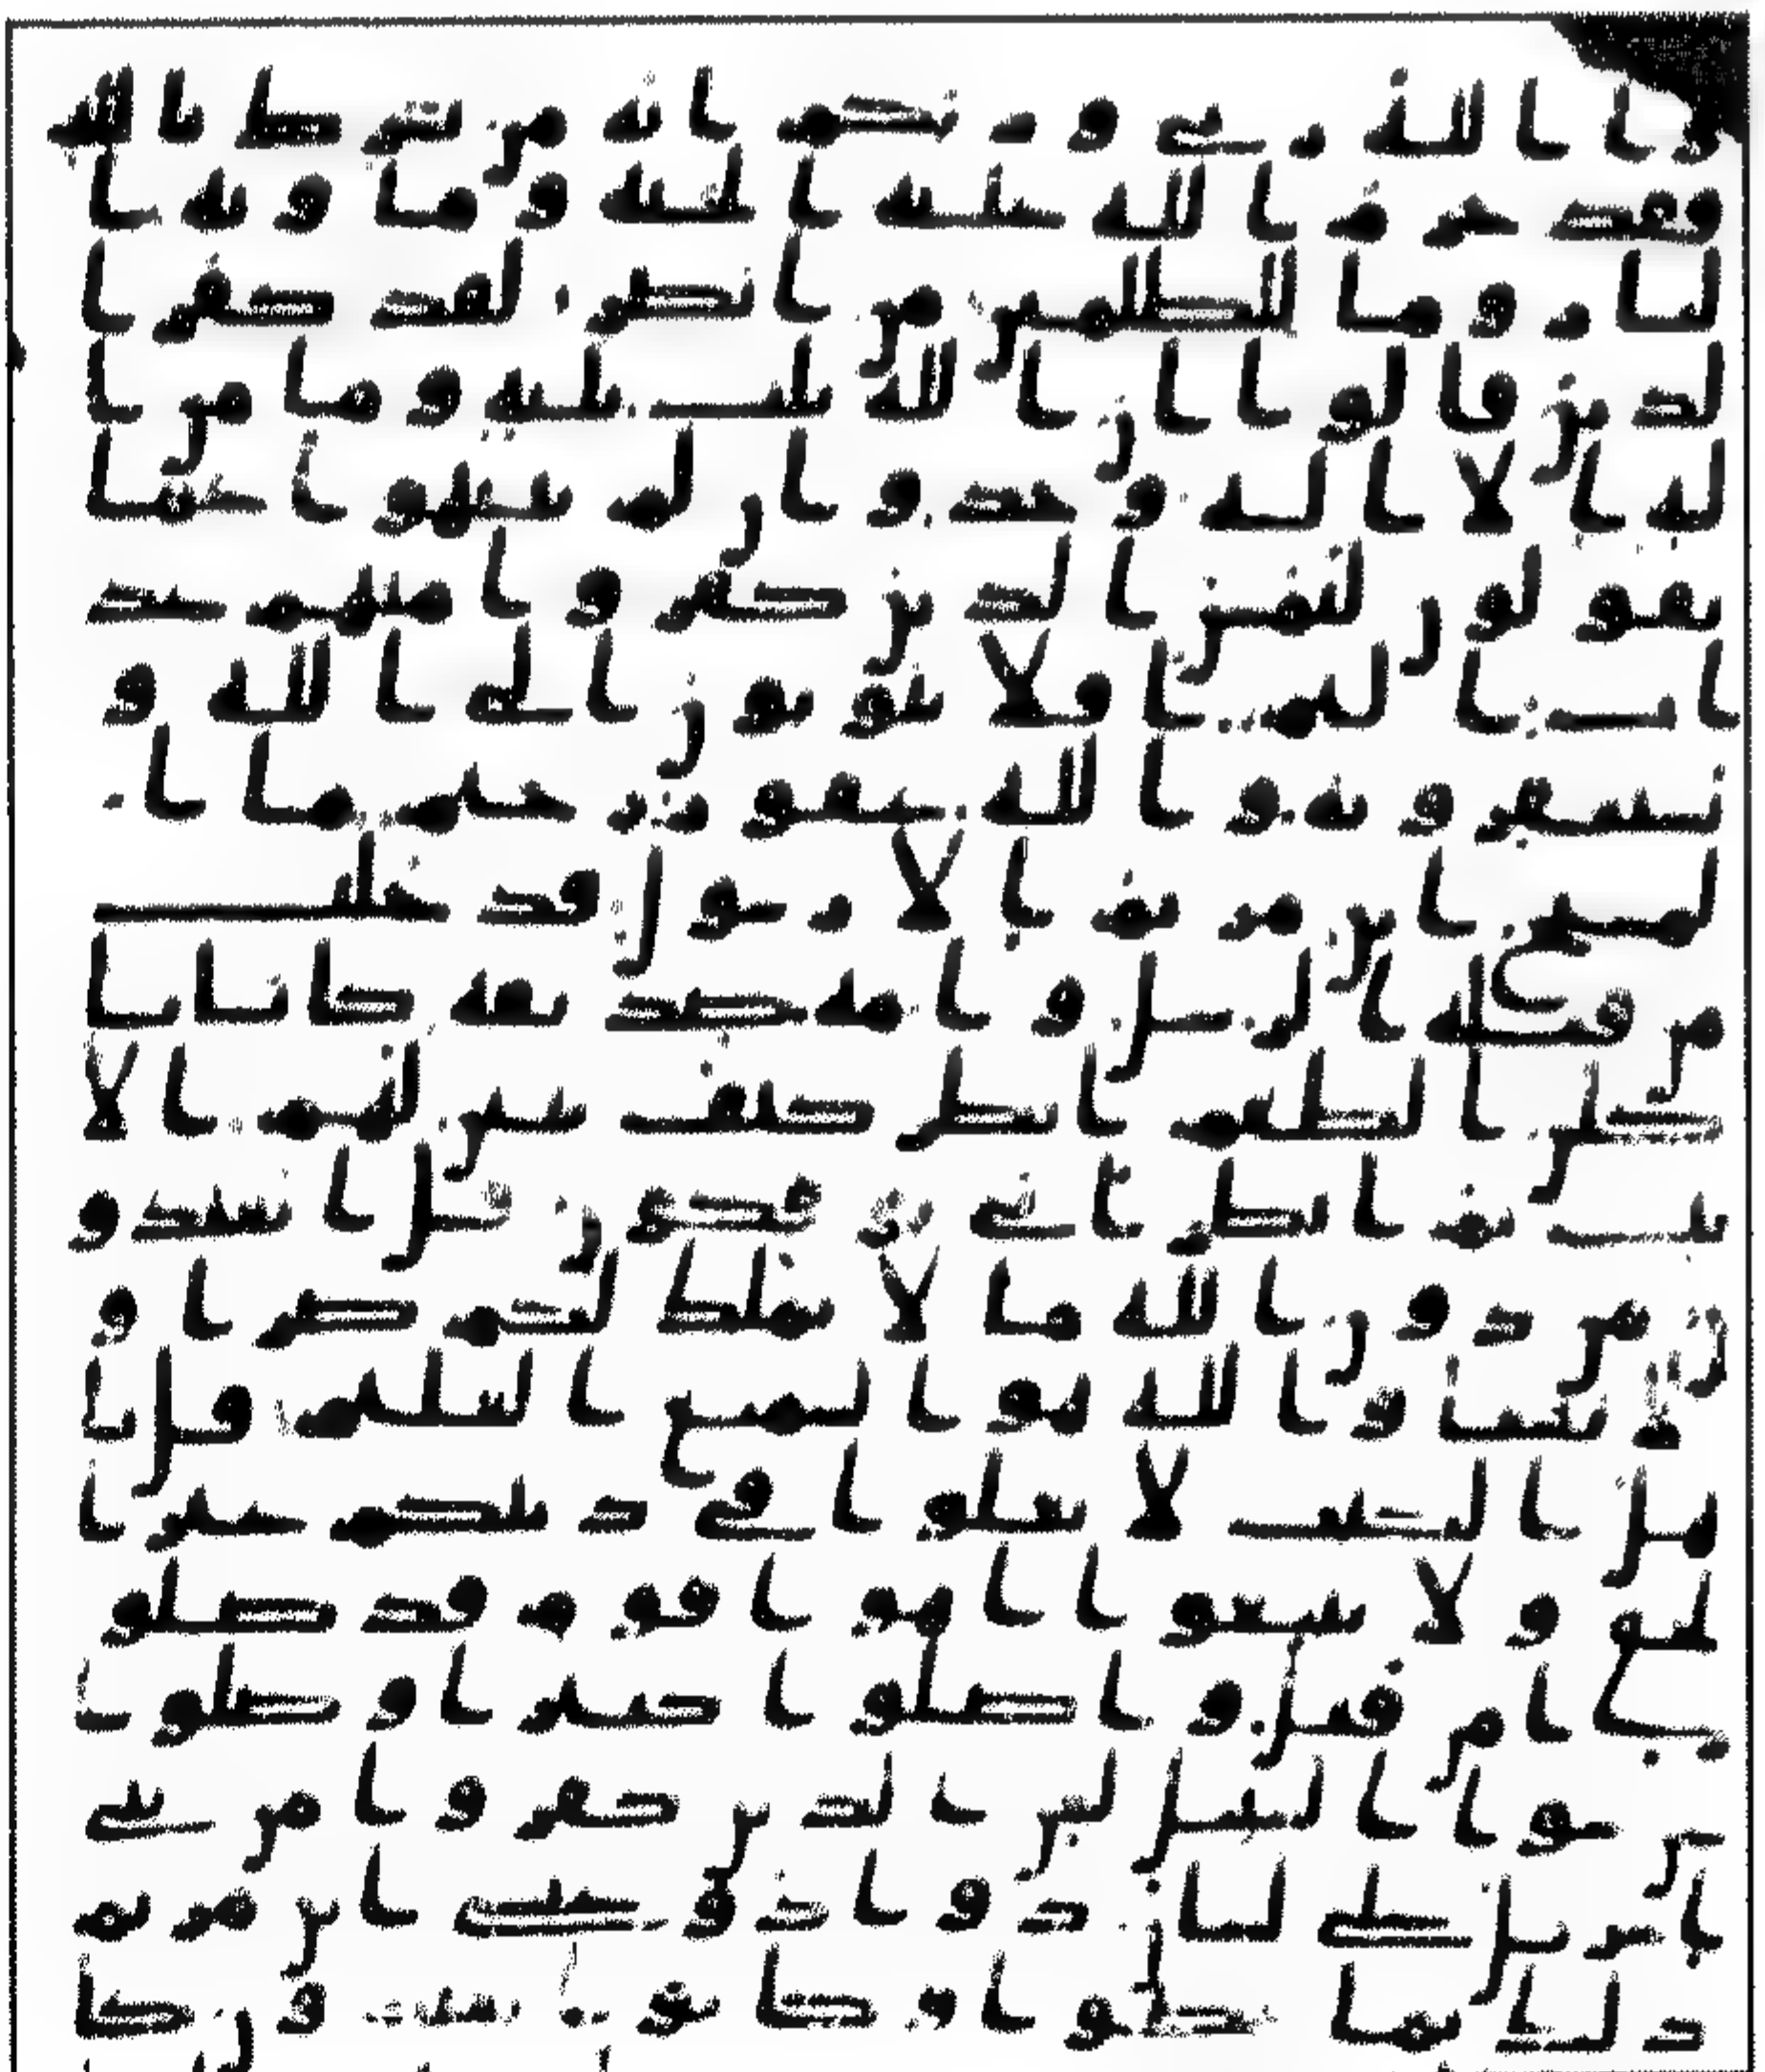 وا الله ربي وربكم انه من يشرك بالله
فقد حرم الله عليه الجنه وماويه ا
لنار وما للظلمين من انصر لقد كفر ا
لذين قالوا ان الله ثلث ثلثه وما من ا
له الا اله وحد وان لم ينتهوا عما
يقولون ليمسن الذين كفروا منهم عذ
اب اليم افلا يتوبون الى الله و
يستغفرونه والله غفور رحيم ما ا
لمسيح ابن مريم الا رسول قد خلت
من قبله الرسل وامه صديقه كانا يا
كلن الطعم انظر كيف نبين لهم الا
يت ثم انظر انى يوفكون قل اتعبدو
ن من دون الله ما لا يملك لكم ضرا و
لا نفعا والله هو السميع العليم قل يا
هل الكتب لا تغلوا في دينكم غير ا
لحق ولا تتبعوا اهوا قوم قد ضلو
ا من قبل واضلوا كثيرا وضلوا
عن سوا السبيل لعن الذين كفروا من بني
اسريل على لسان داود وعيسى ابن مريم
ذلك بما عصوا وكانوا يعتدون كا